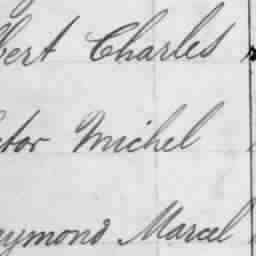 bert Charles
ctor Michel
aymond Marcel